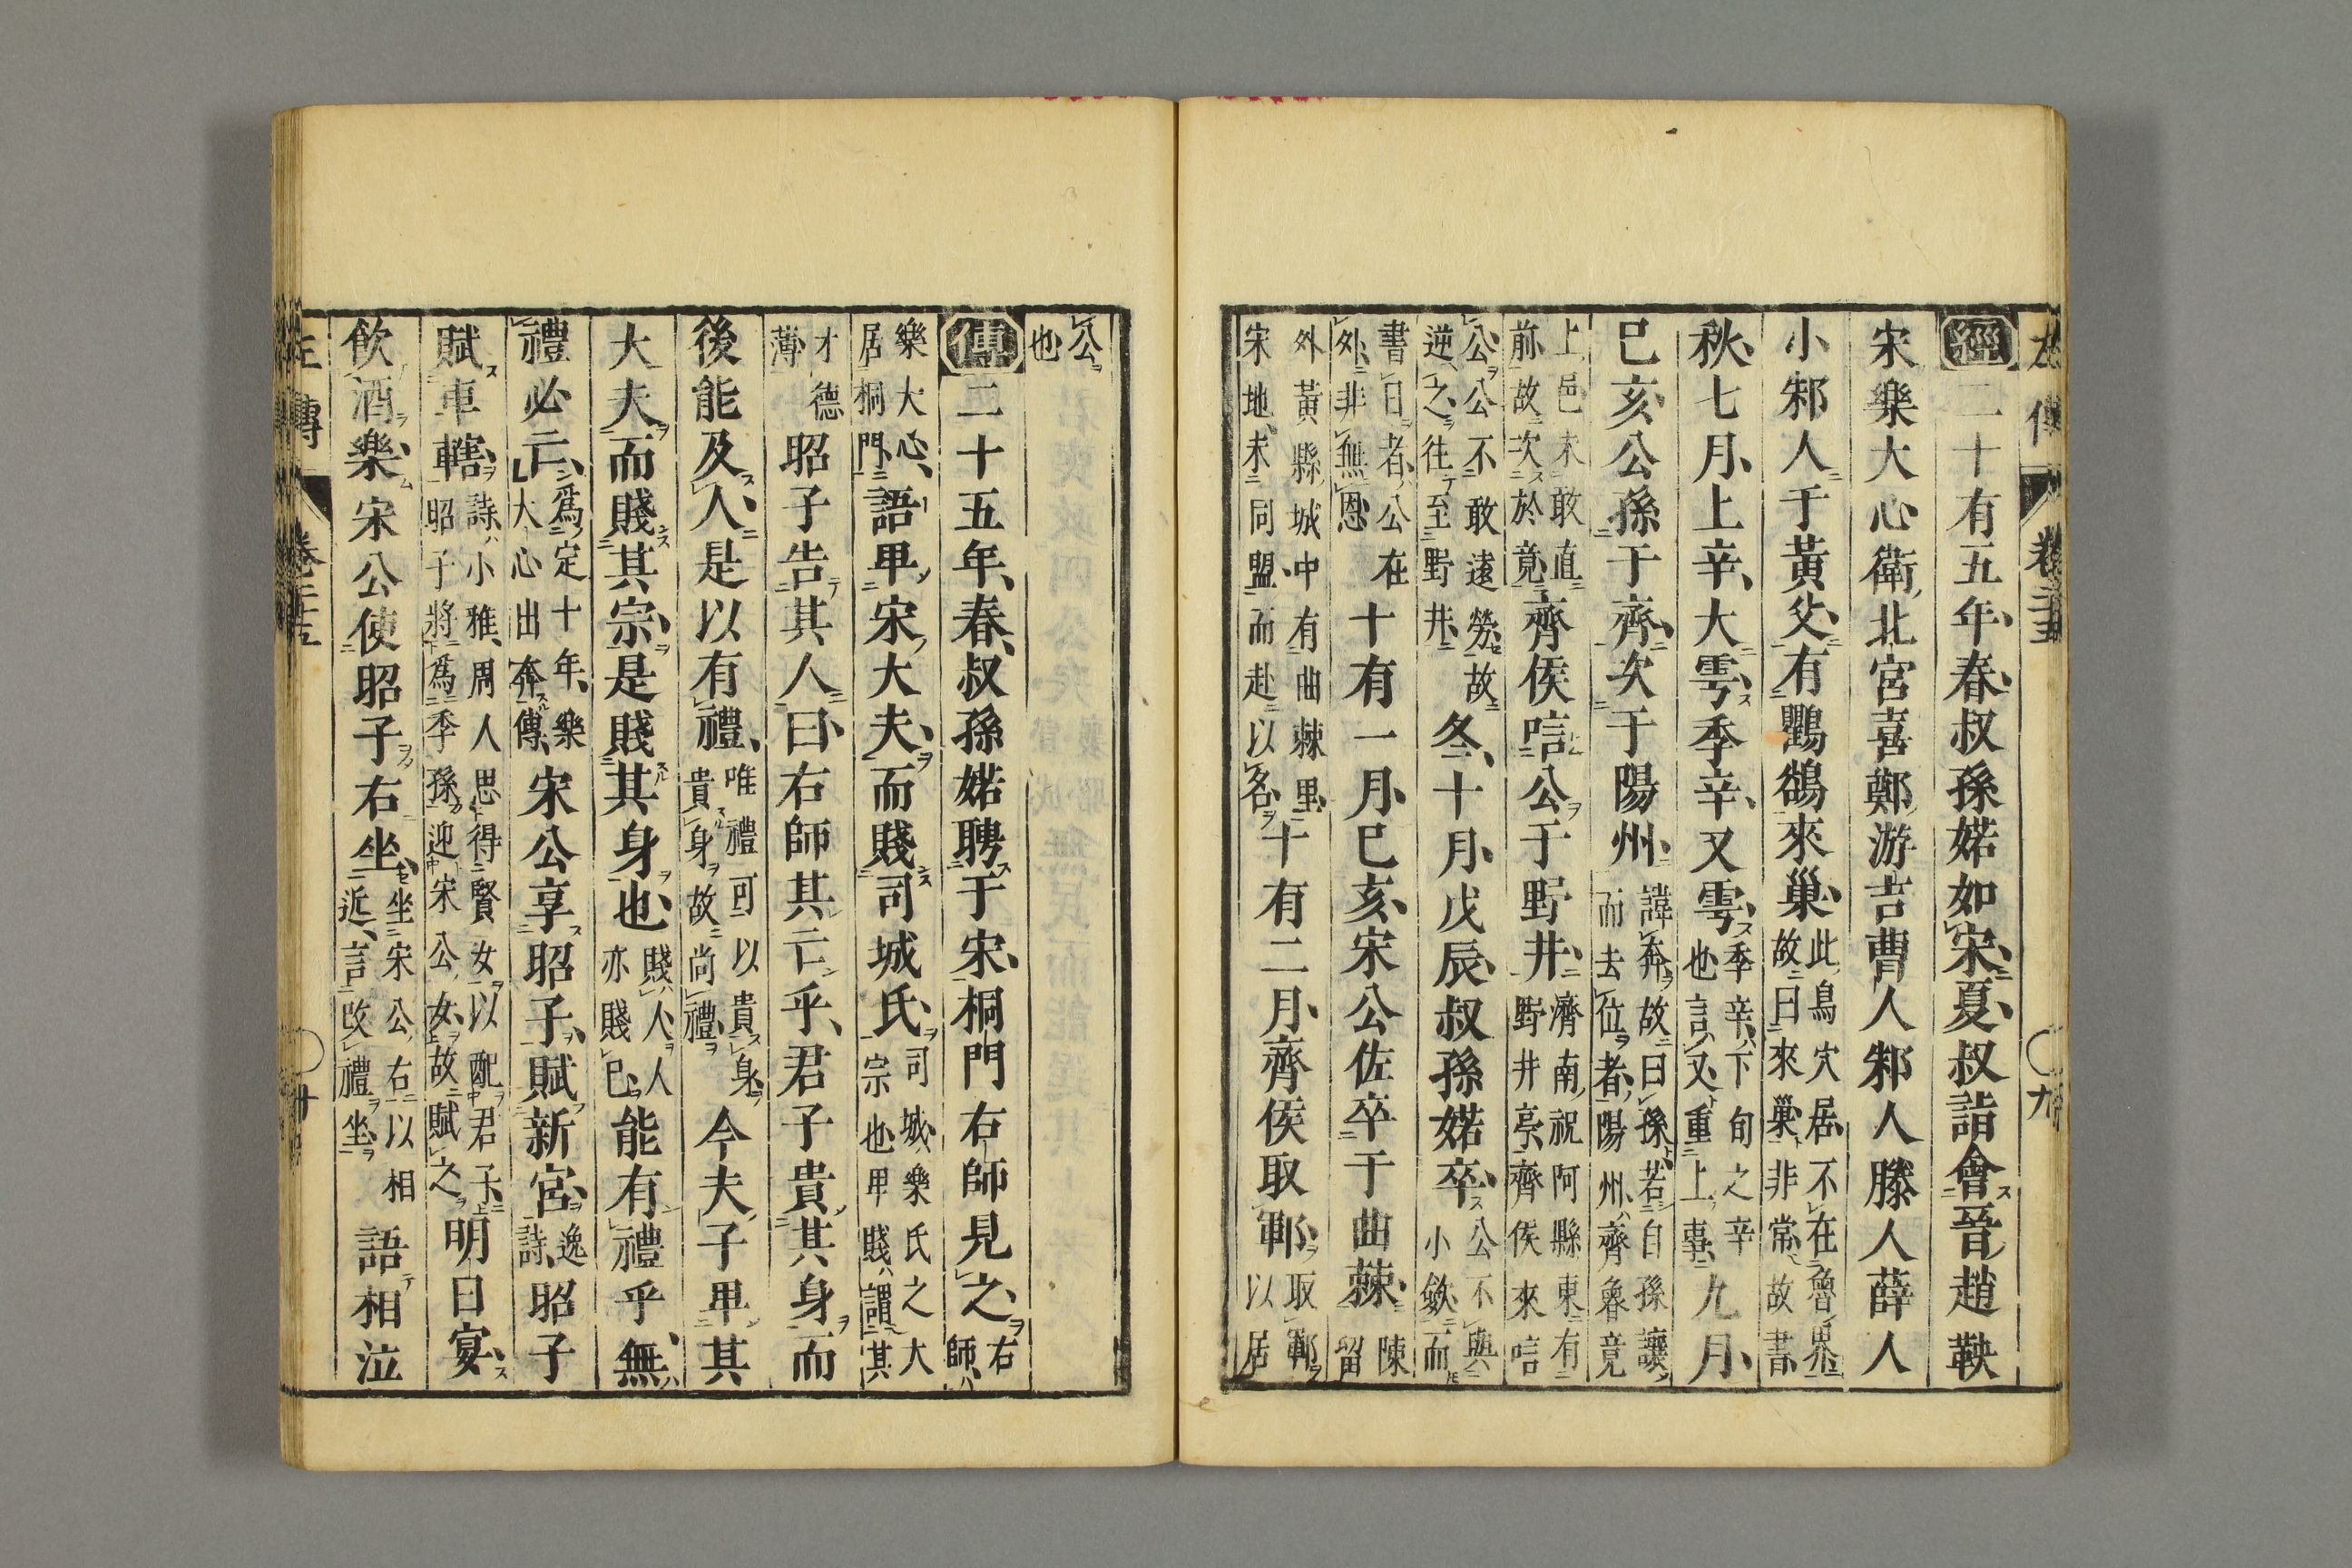 經二十有五年、春、叔孫婼如宋、夏、叔詣會晉趙鞅
宋樂大心衛北宮喜鄭游吉曹人邾人滕人薛人
小邾人于黃父、有鸜鵒來巢、此鳥穴居不在魯界故曰來巢、非常故書
秋、七月、上辛、大雩、季辛、又雩、季辛下旬之辛也言又重上事、九月、
己亥、公孫于齊、次于陽州、諱奔故曰孫若自孫讓而去位者、陽州齊魯竟
上邑未敢直前故次於竟、齊侯唁公于野井、濟南祝阿縣東有野井亭、齊侯來唁
公公不敢遠勞故逆之往至野井、冬、十月、戊辰、叔孫婼卒、公不與小斂而
書日者、公在外、非無恩十有一月、己亥、宋公佐卒于曲棘、陳留
外黃縣城中有曲棘里、宋地、未同盟、而赴以名十有二月、齊侯取鄆、取鄆以居
公也
傳二十五年、春、叔孫婼聘于宋、桐門右師見之、右師、
樂大心、居桐門、語卑宋大夫、而賤司城氏、司城、樂氏之大宗也、卑賤、謂其
才德薄昭子告其人曰、右師其亡乎、君子貴其身、而
後能及人、是以有禮、唯禮可以貴身、貴身故尚禮、今夫子卑其
大夫、而賤其宗、是賤其身也、賤人人亦賤己能有禮乎、無
禮必亡、爲定十年、樂大心出奔傳、宋公享昭子、賦新宮、逸詩、昭子
賦車轄、詩小雅、周人思得賢女以配君子、昭子將爲季孫迎宋公女、故賦之明日宴、
飲酒、樂、宋公使昭子右坐、坐宋公右以相近、言改禮坐、語相泣
左傳 卷二十五 〇 廿